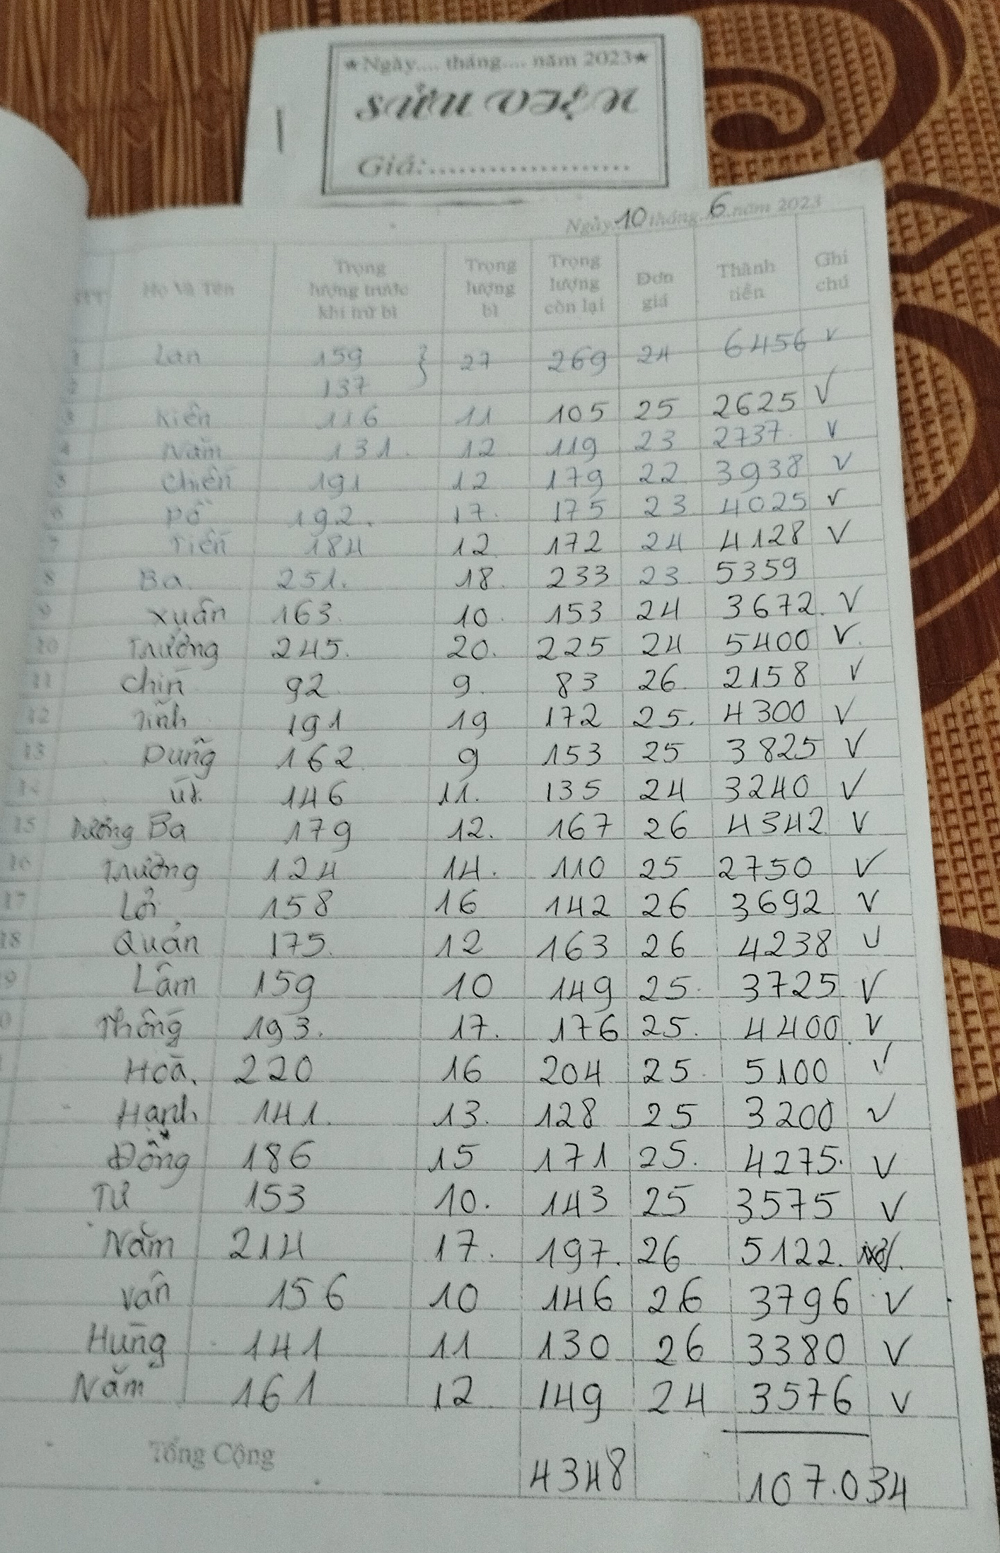 ★Ngày.... tháng.... năm 2023★
SỬU VIỆN
Giá:....................
Ngày 10 tháng 6 năm 2023
STT Họ Và Tên Trọng lượng trước khi trừ bì Trọng lượng bì Trọng lượng còn lại Đơn giá Thành tiền Ghi chú
1 Lan 159 } 27 269 24 6456 v
2 137
3 Kiên 116 11 105 25 2625 v
4 Năm 131. 12 119 23 2737 v
5 Chiên 191 12 179 22 3938 v
6 192. 17. 175 23 4025 v
7 Tiên 184 12 172 24 4128 v
8 Ba 251. 18. 233 23 5359
9 Xuân 163 10. 153 24 3672. v
10 Trường 245. 20. 225 24 5400 v
11 Chín 92 9. 83 26 2158 v
12 Tỉnh 191 19 172 25. 4300 v
13 Dung 162 9 153 25 3825 v
14 út 146 11. 135 24 3240 v
15 Ba 179 12. 167 26 4342 v
16 Trường 124 14. 110 25 2750 v
17 158 16 142 26 3692 v
18 Quân 175. 12 163 26 4238 v
9 Lâm 159 10 149 25. 3725 v
Thông 193. 17. 176 25. 4400 v
Hoà. 220 16 204 25. 5100 v
Hạnh 141. 13. 128 25 3200 v
Đồng 186 15 171 25. 4275. v
Tư 153 10. 143 25 3575 v
Năm 214 17. 197. 26 5122.
Vân 156 10 146 26 3796 v
Hưng 141 11 130 26 3380 v
Năm 161 12 149 24 3576 v
Tổng Cộng 4348 107.034